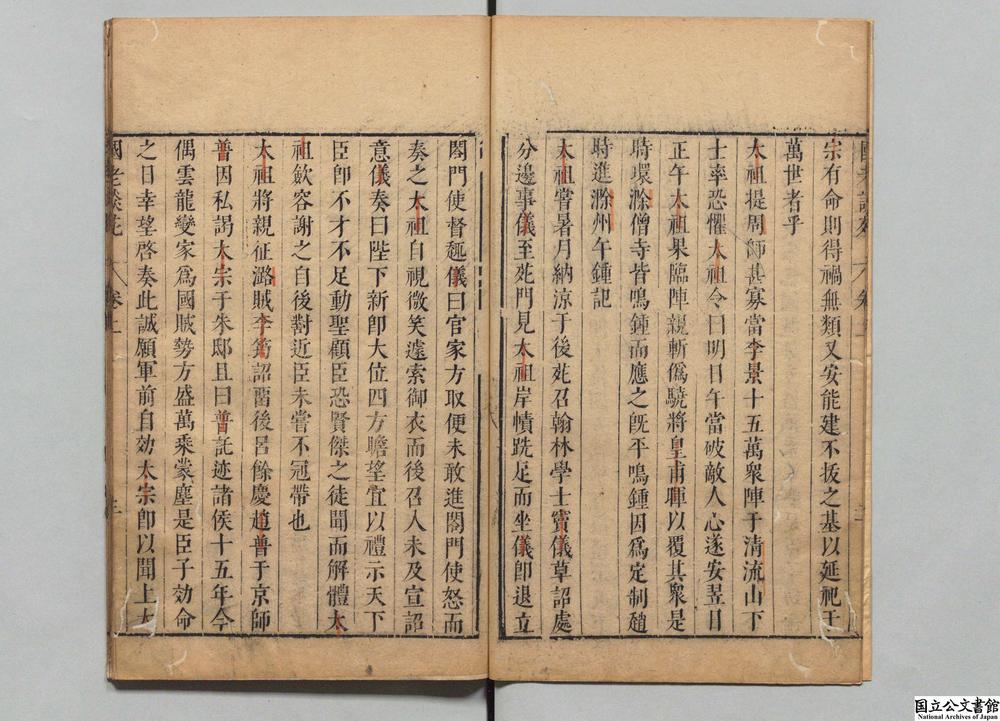 宗有命則得禍無類又安能建不拔之基以延祀于
萬世者乎
太祖提周師甚寡當李景十五萬衆陣于清流山下
士卒恐懼太祖令曰明日午當破敵人心遂安翌日
正午太祖果臨陣親斬僞驍將皇甫暉以覆其衆是
時環滁僧寺皆鳴鍾而應之旣平鳴鍾因爲定制趙
時進滁州午鍾記
太祖嘗暑月納涼于後苑召翰林學士竇儀草詔處
分邊事儀至苑門見太祖岸幘跣足而坐儀卽退立
閤門使督趣儀曰官家方取便未敢進閤門使怒而
奏之太祖自視微笑遽索御衣而後召入未及宣詔
意儀奏曰陛下新卽大位四方瞻望宜以禮示天下
臣卽不才不足動聖顧臣恐賢傑之徒聞而解體太
祖斂容謝之自後對近臣未嘗不冠帶也
太祖將親征潞賊李筠詔留後呂餘慶趙普于京師
普因私謁太宗于朱邸且曰普託迹諸侯十五年今
偶雲龍變家爲國賊勢方盛萬乘蒙塵是臣子効命
之日幸望啓奏此誠願軍前自効太宗卽以聞上大
國老談苑
卷上
国立公文書館
National Archives of Japan